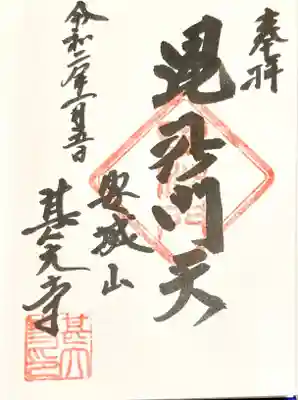 奉拝
毘沙門天
安城山
甚大寺
令和二年一月五日